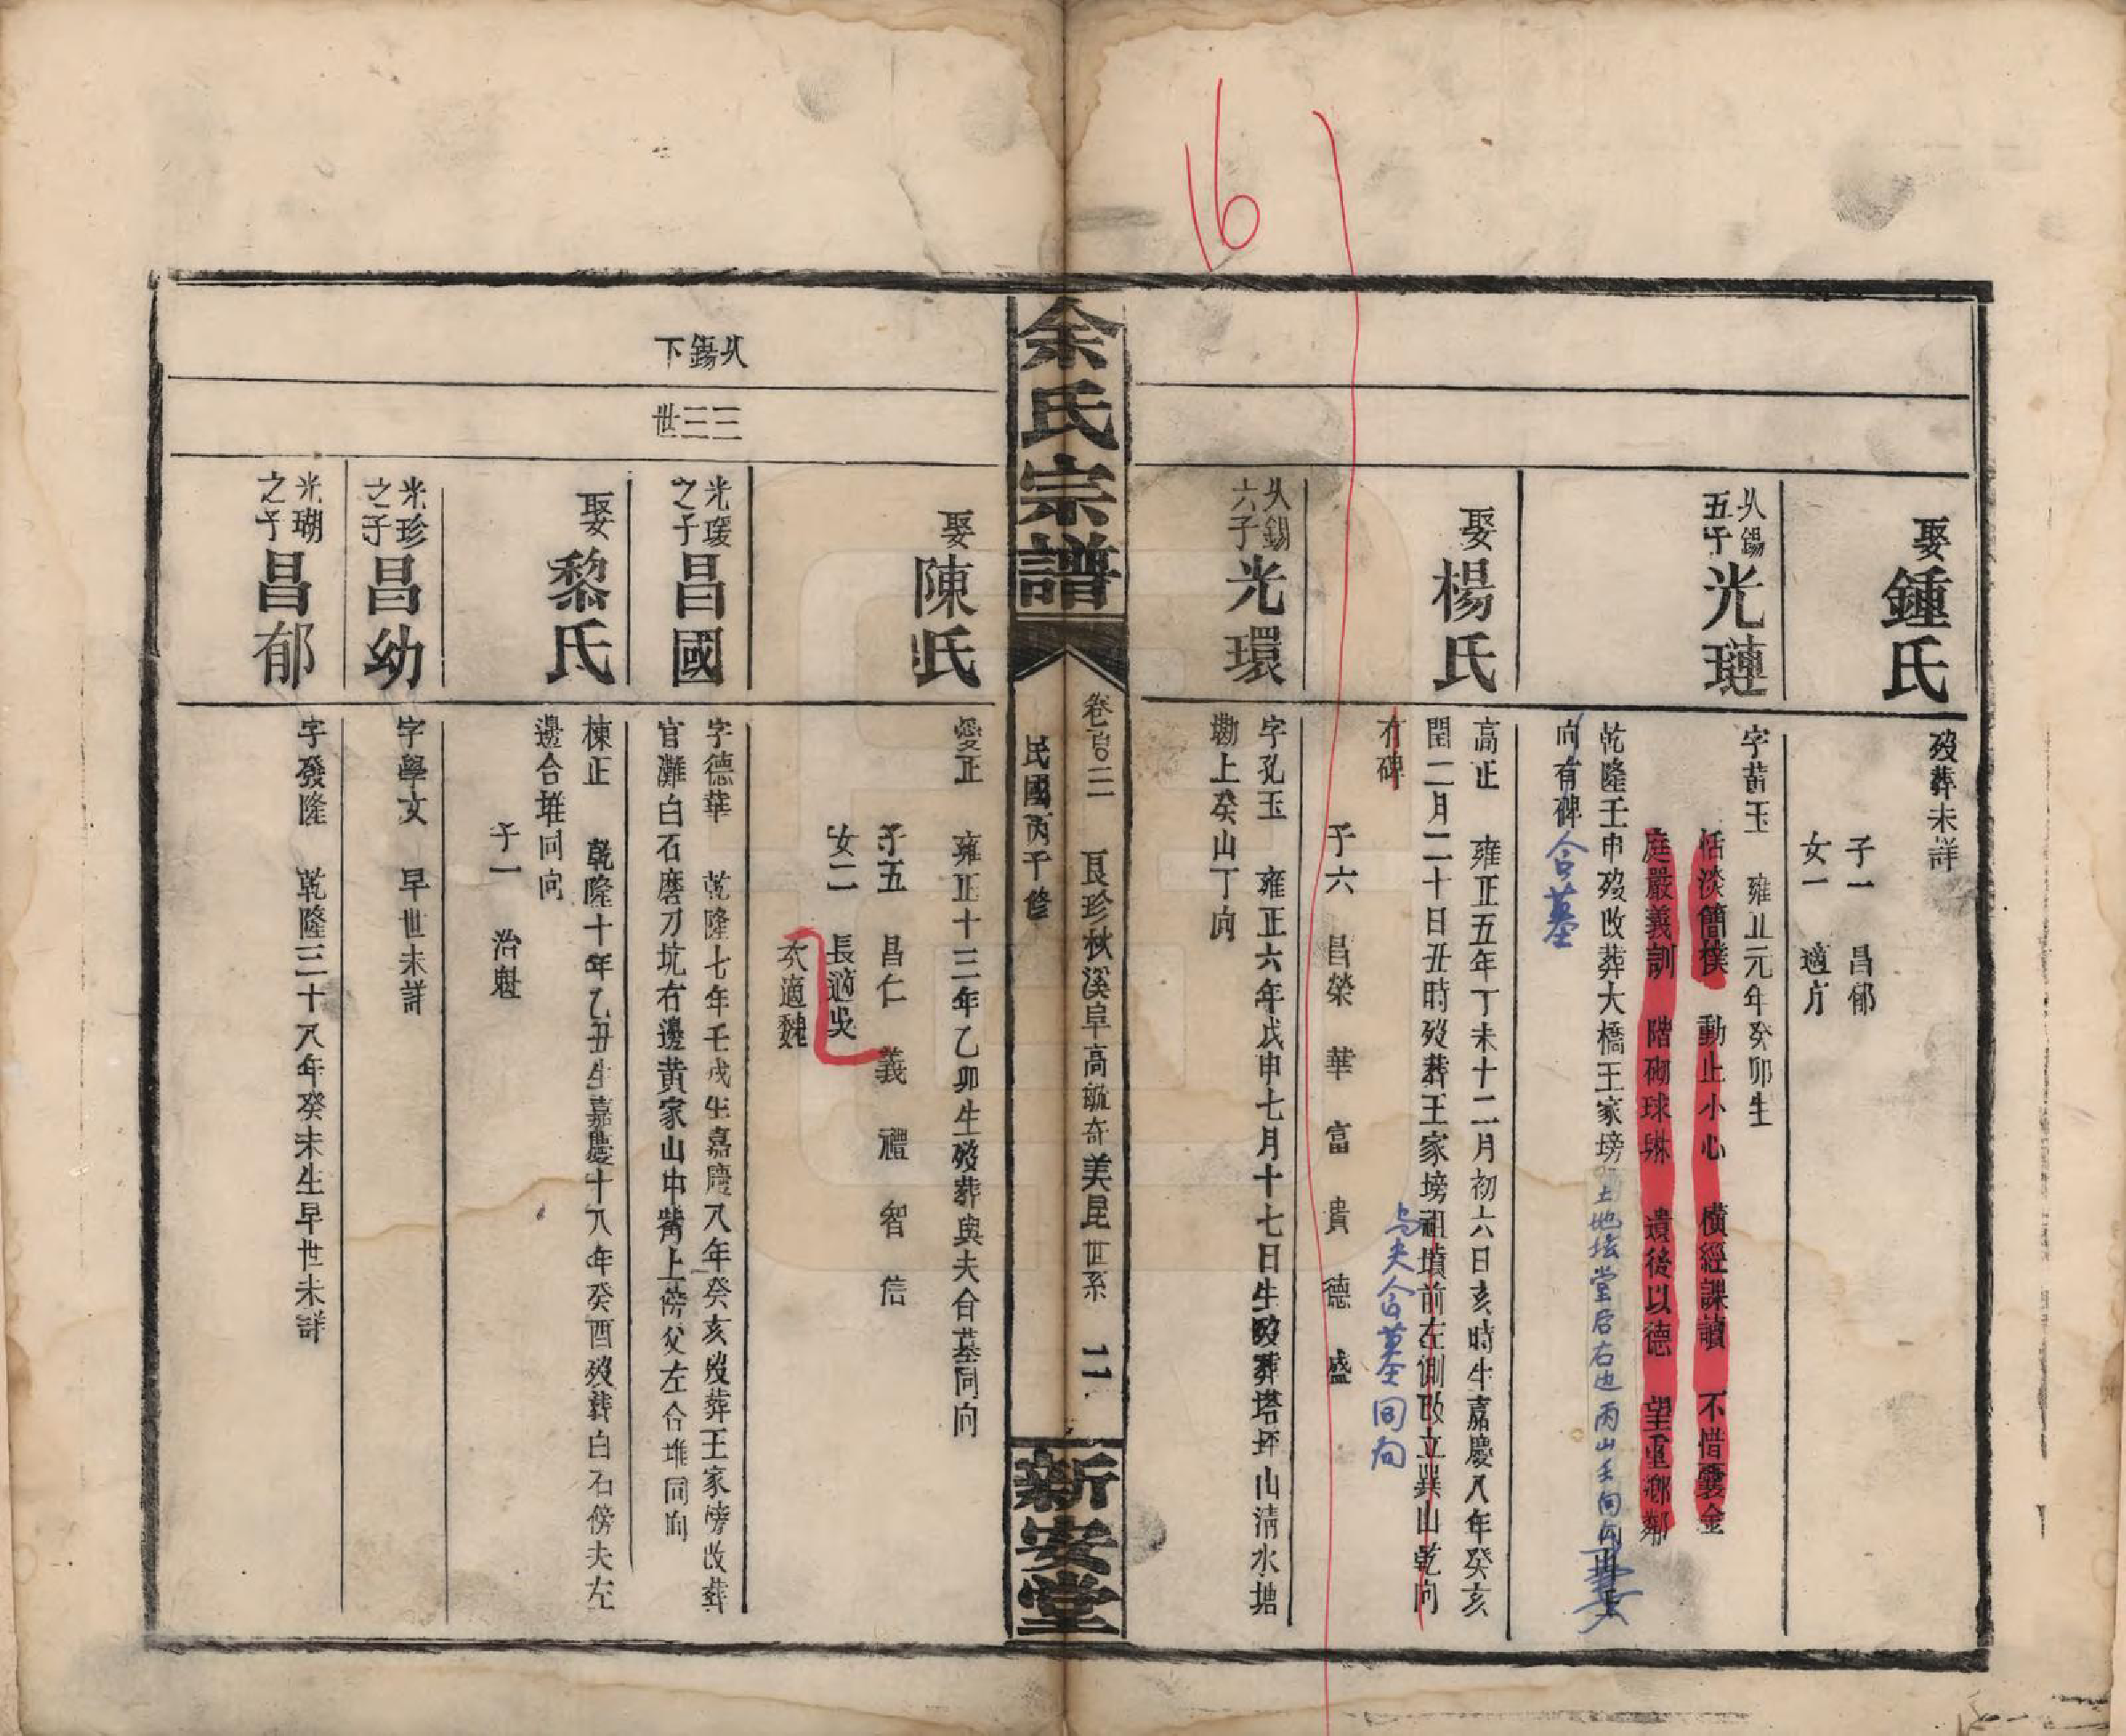 16
娶鍾氏
歿葬未詳
子一 昌郁
女一 適方
从錫五子光璉
字苗玉 雍正元年癸卯生
恬淡簡樸 動止小心 橫經課讀 不惜囊金
庭嚴義訓 階砌球琳 遺後以德 望重鄉鄰
乾隆壬申歿改葬大橋王家塝
向有碑
合墓
土地坛堂后右边丙山壬向
娶楊氏
高正 雍正五年丁未十二月初六日亥時生嘉慶八年癸亥
閏二月二十日丑時歿葬王家塝祖墳前左側改立巽山乾向
有碑
与夫合墓同向
子六 昌榮 華 富 貴 德 盛
从錫六子光環
字孔玉 雍正六年戊申七月十七日生歿葬塔坪山清水塘
墈上癸山丁向
余氏宗譜
卷百三 艮珍秋溪阜高毓奇美昆世系 二
民國丙子修
新安堂
从錫下
三三世
娶陳氏
愛正 雍正十三年乙卯生歿葬與夫合墓同向
子五 昌仁 義 禮 智 信
女二 長適吳
次適魏
光瑗之子昌國
字德華 乾隆七年壬戌生嘉慶八年癸亥歿葬王家塝改葬
官灘白石磨刀坑右邊黃家山中嘴上傍父左合堆同向
娶黎氏
棟正 乾隆十年乙丑生嘉慶十八年癸酉歿葬白石傍夫左
邊合堆同向
子一 治魁
光珍之子昌幼
字學文 早世未詳
光瑚之子昌郁
字發隆 乾隆二十八年癸未生早世未詳